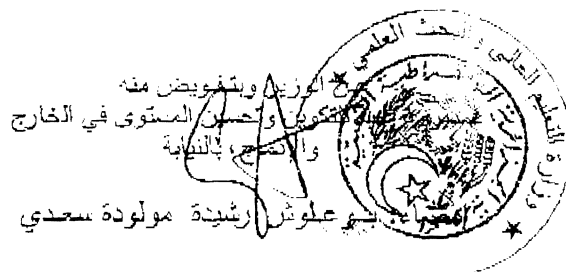 عن الوزير وبتفويض منه
للتكوين وتحسين المستوى في الخارج
والإدماج، بالنيابة
إمضاء: بوعلوش رشيدة مولودة سعدي
وزارة التعليم العالي والبحث العلمي